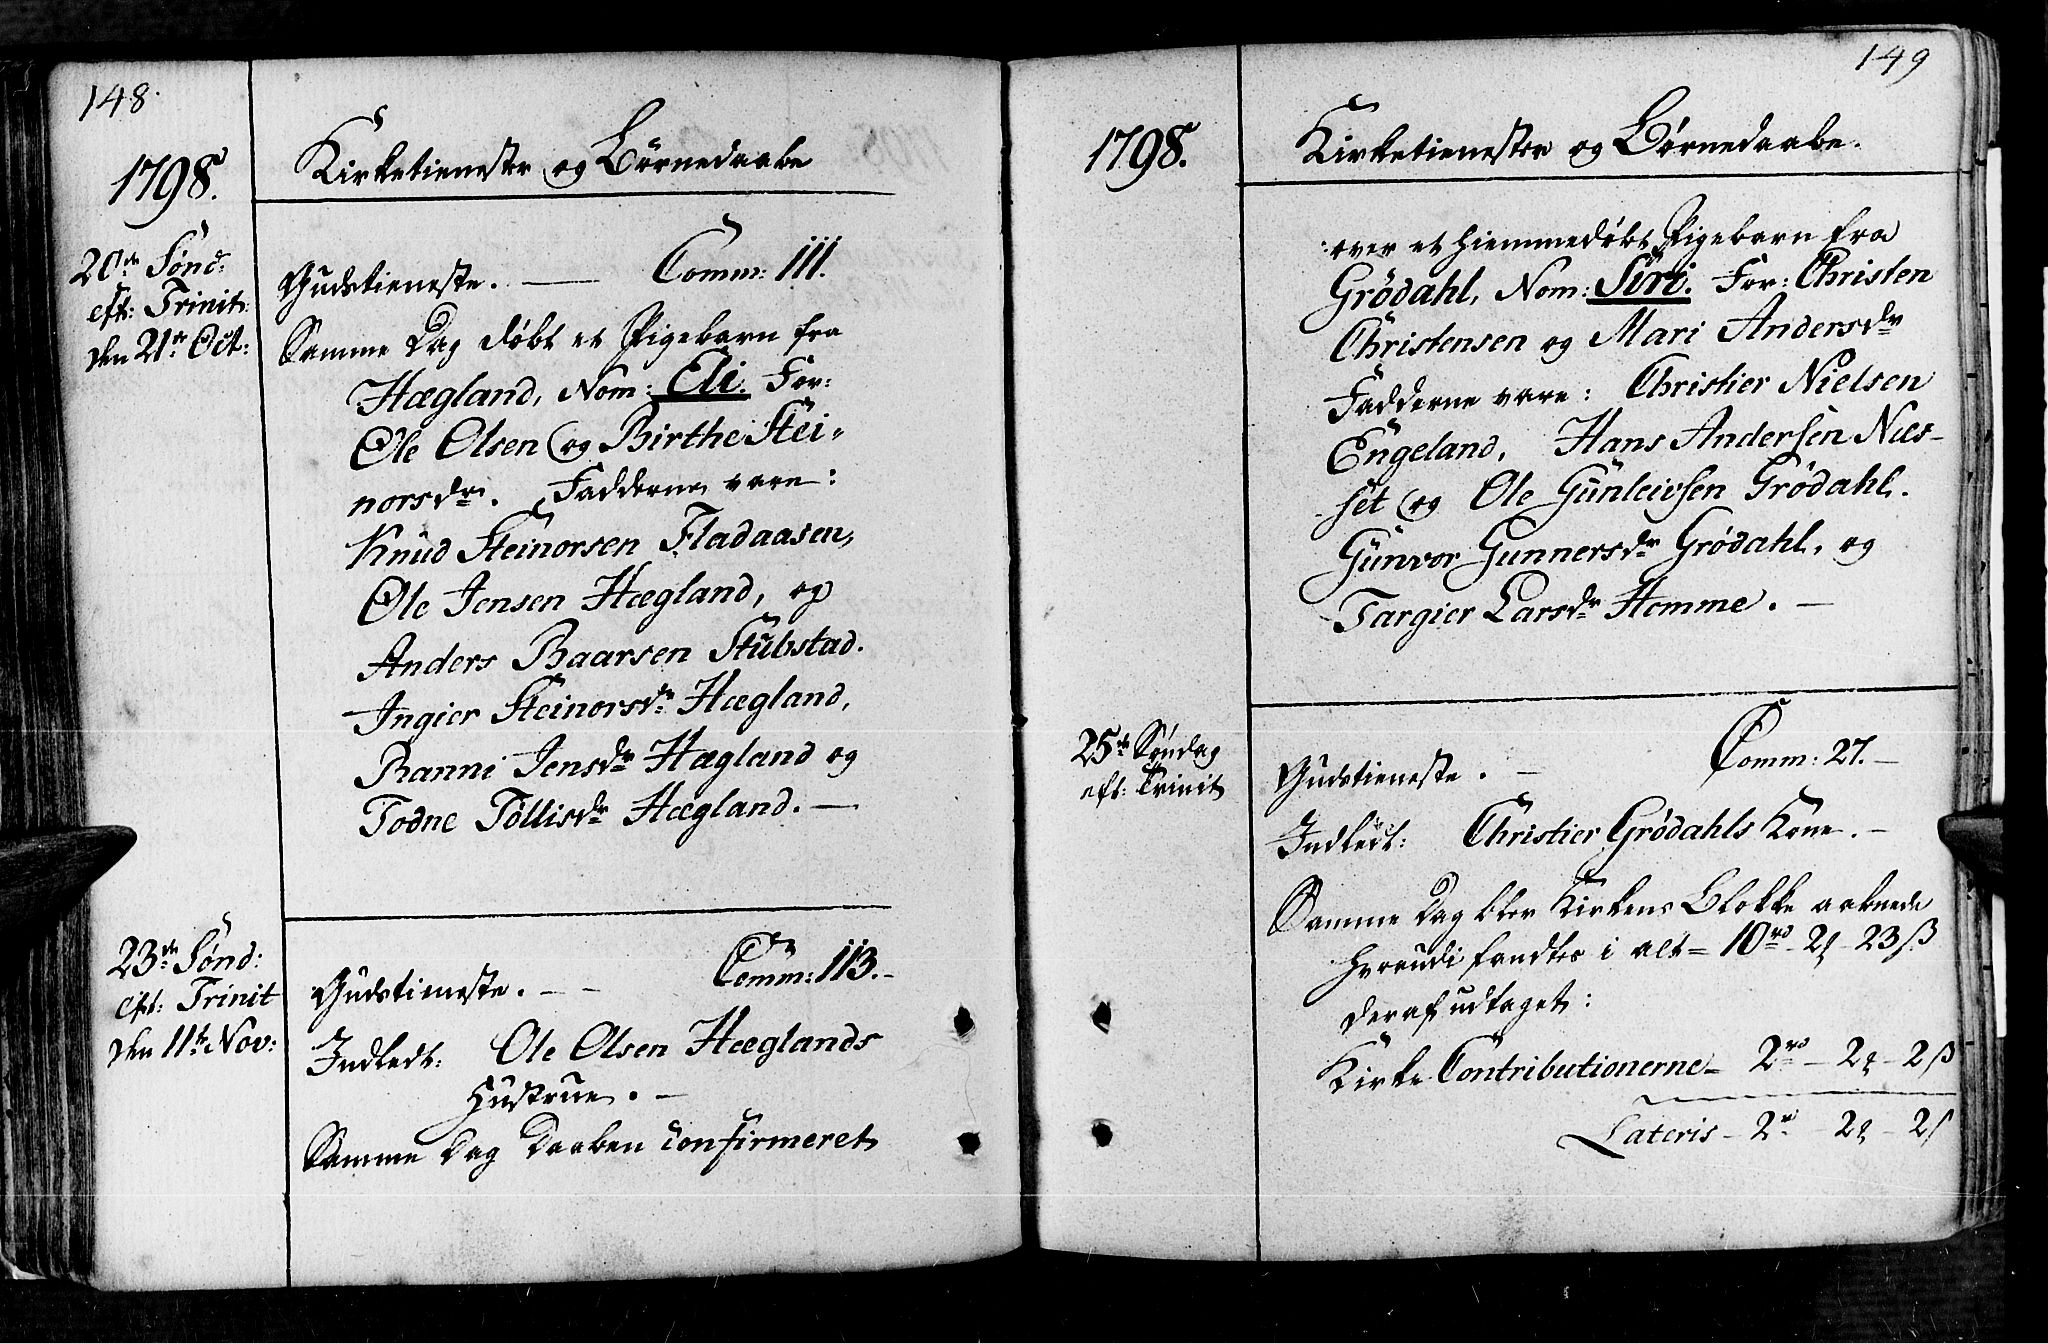 148.
1798.
Kirketienester og Børnedaabe
20de Sønd:
eft: Trinit:
den 21de Oct:
Gudstieneste. — Comm: 111.
Samme Dag døbt et Pigebarn fra
Hægland, Nom: Eli. For:
Ole Olsen og Birthe Stei-
norsdr. Fadderne vare:
Knud Steinorsen Fladaasen,
Ole Jensen Hægland, og
Anders Baarsen Stubstad.
Ingier Steinorsdr Hægland,
Ranni Jensdr Hægland og
Todne Tollisdr Hægland. —
23de Sønd:
eft: Trinit
den 11te Nov:
Gudstieneste. — — Comm: 113. –
Indledt: Ole Olsen Hæglands
Hustrue. —
Samme Dag Daaben confirmeret
149
1798.
Kirketienester og Børnedaabe.
over et hiemmedøbt Pigebarn fra
Grödahl, Nom: Siri. For: Christen
Christensen og Mari Andersdr
Fadderne vare: Christier Nielsen
Engeland, Hans Andersen Næs-
set og Ole Gunleivsen Grödahl.
Gunvor Gunnersdr Grödahl, og
Targier Larsdr Homme. —
25de Søndag
eft: Trinit
Gudstieneste. — Comm: 27. —
Indledt: Christier Grödahls Kone. —
Samme Dag blev Kirkens Blokke aabnede
hvorudi fandtes i alt = 10 rd - 2 - 23 ß
deraf udtaget:
Kirke Contributionerne - 2 rd - 2 - 2 ß
Lateris - 2 rd - 2 - 2 ß